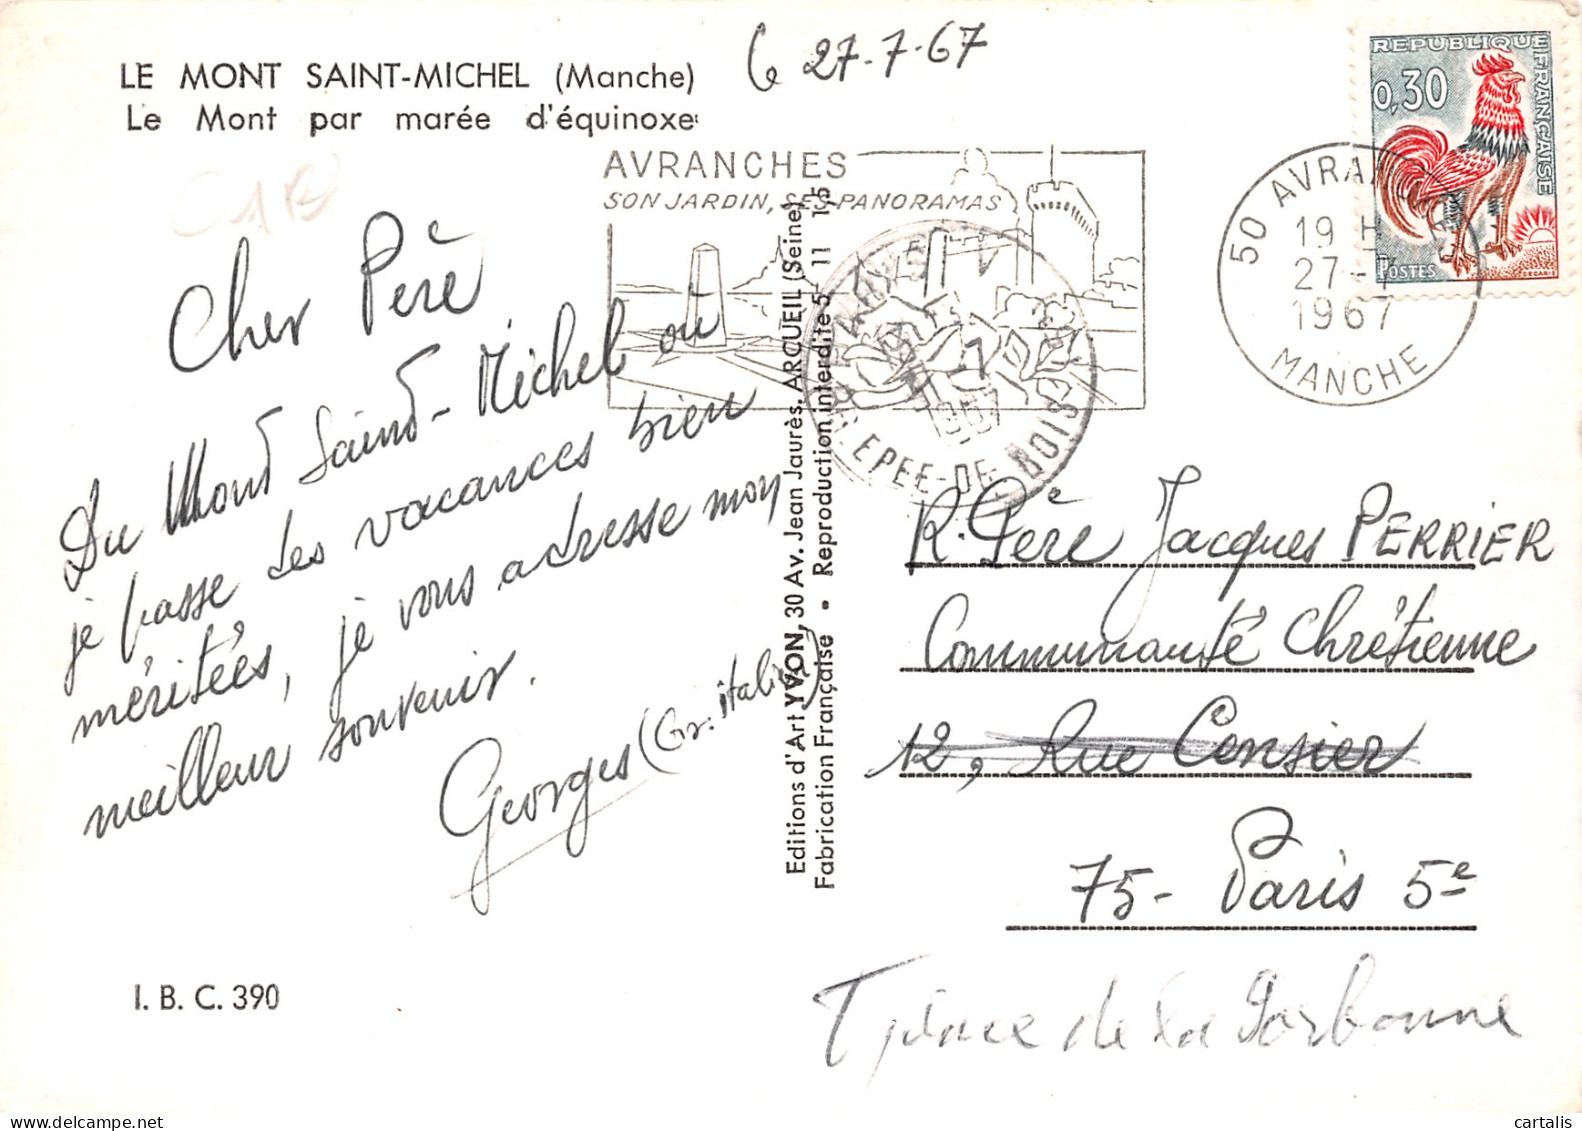 LE MONT SAINT-MICHEL (Manche)
Le Mont par marée d'équinoxe
le 27-7-67
REPUBLIQUE FRANÇAISE
0,30
POSTES
DECARIS
AVRANCHES
SON JARDIN, SES PANORAMAS
50 AVRANCHES
19 H
27-7
1967
MANCHE
1967
EPEE-DE-BOIS
Cher Père
Du Mont Saint-Michel où
je passe des vacances bien
méritées, je vous adresse mon
meilleur souvenir.
Georges (Gr. italien)
Editions d'Art YVON, 30 Av. Jean Jaurès, ARCUEIL (Seine)
Fabrication Française • Reproduction interdite 5 11 15
R. Père Jacques PERRIER
Communauté Chrétienne
12, Rue Censier
75- Paris 5e
place de la Sorbonne
I. B. C. 390
cartalis